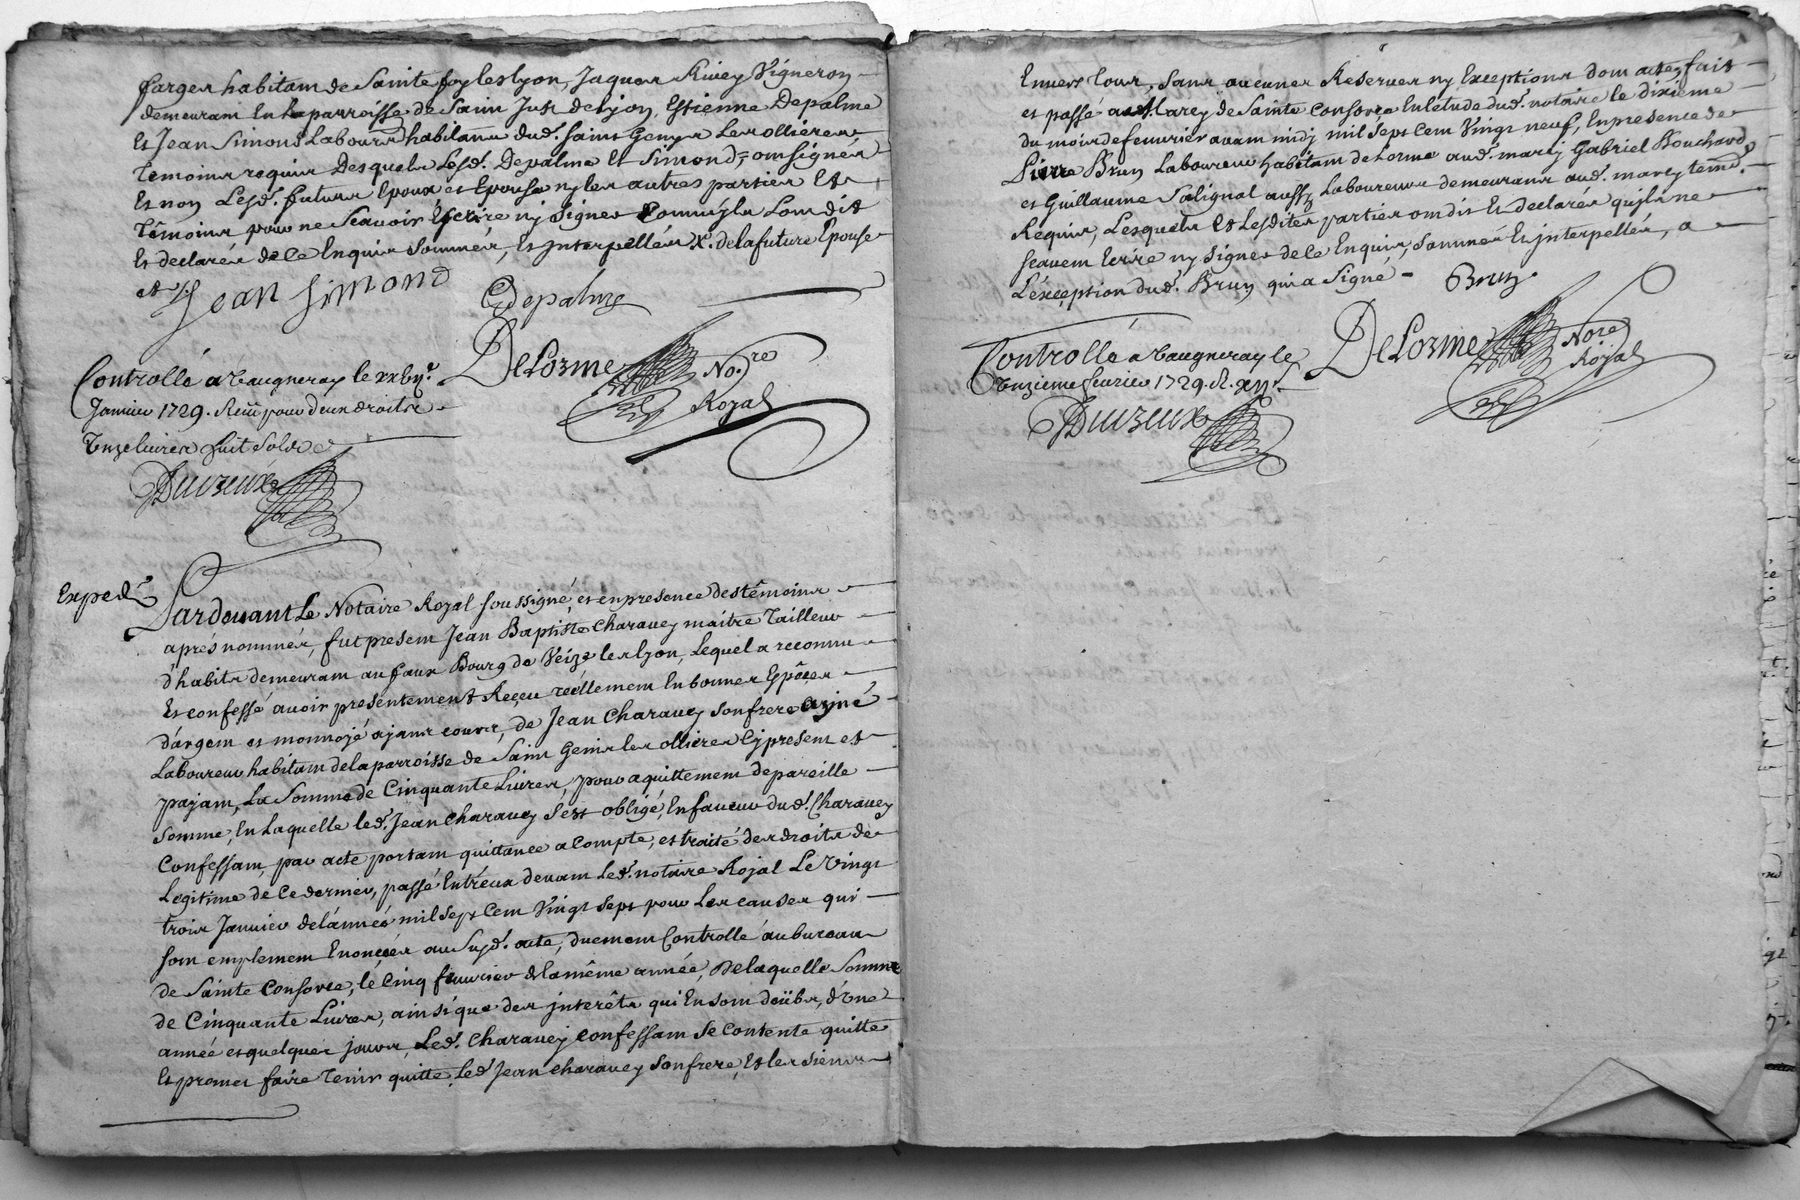 farges habitant de Sainte foy les lyon, Jaques Vigneron
demeurant En la parroisse de Saint Just de Lyon, Estienne Depalme
Et Jean Simond Laboure habitans dud. Saint Genys Les ollieres
temoins requis Desquels Lesd. Depalme Et Simond ont signés
Et non Lesd. futurs Epoux et Epouse ny les autres parties Et
témoins pour ne Scavoir Escrire ny Signer Comme ils L'ont dit
Et declarés de ce Enquis Sommés, Et jnterpellés X. de la future Epouse
Jean Simond
Depalme
DeLorme No.re
Royal
Controllé a Vaugneray le
Janvier 1729. Receu pour deux droits
Onze livres huit Sols
Expedié
Pardevant Le Notaire Royal soussigné, et en presence des témoins
aprés nommés, fut present Jean Baptiste Charavey maitre Tailleur
d'habits demeurant au faux Bourg de Veize les Lyon, Lequel a reconnu
Et confessé avoir presentement Reçeu réellement En bonnes Espéces
d'argent et monnoyé ayant cours, de Jean Charavey son frere ayné
Laboureur habitant de la parroisse de Saint Genis les ollieres Cy present et
payant, La Somme de Cinquante Livres, pour aquittement de pareille
Somme, En Laquelle led. Jean Charavey s'est obligé, En faveur dud. Charavey
Confessant, par acte portant quittance a compte, et traité des droits de
Legitime de Ce dernier, passé Entréux devant Led. notaire Royal Le Vingt
trois Janvier de l'année mil sept Cent Vingt sept pour Les causes qui
sont emplement Enoncées au Susd. acte, duement Controllé au bureau
de Sainte Consorce, le Cinq feuvrier de la même année, De laquelle Somme
de Cinquante Livres, ainsi que des jnterêts qui En sont deübs, d'Vne
année et quelques jours, Led. Charavey Confessant Se Contente quitte
Et promet faire Tenir quitte Led. Jean Charavey Son frere, Et les Siens
Envers tous, Sans aucunes Reserves ny Exceptions dont acte, fait
et passé a Marcy de Sainte Consorce En l'etude dud. notaire le dixieme
du mois de feuvrier avant midy mil Sept Cent Vingt neuf, En presence de
Pierre Brun Laboureur habitant de Lorme aud. marcy Gabriel Bouchard,
et Guillaume Salignat aussy Laboureurs demeurans aud. marcy temoins
Requis, Lesquels Et Lesdites parties ont dit Et declarés qu'ils ne
scavent Ecrire ny Signer de Ce Enquis, Sommés Et jnterpellés, a
L'exception dud. Brun qui a Signé
Brun
DeLorme Nore
Royal
Controllé a Vaugneray le
Onzieme feuvrier 1729. R.